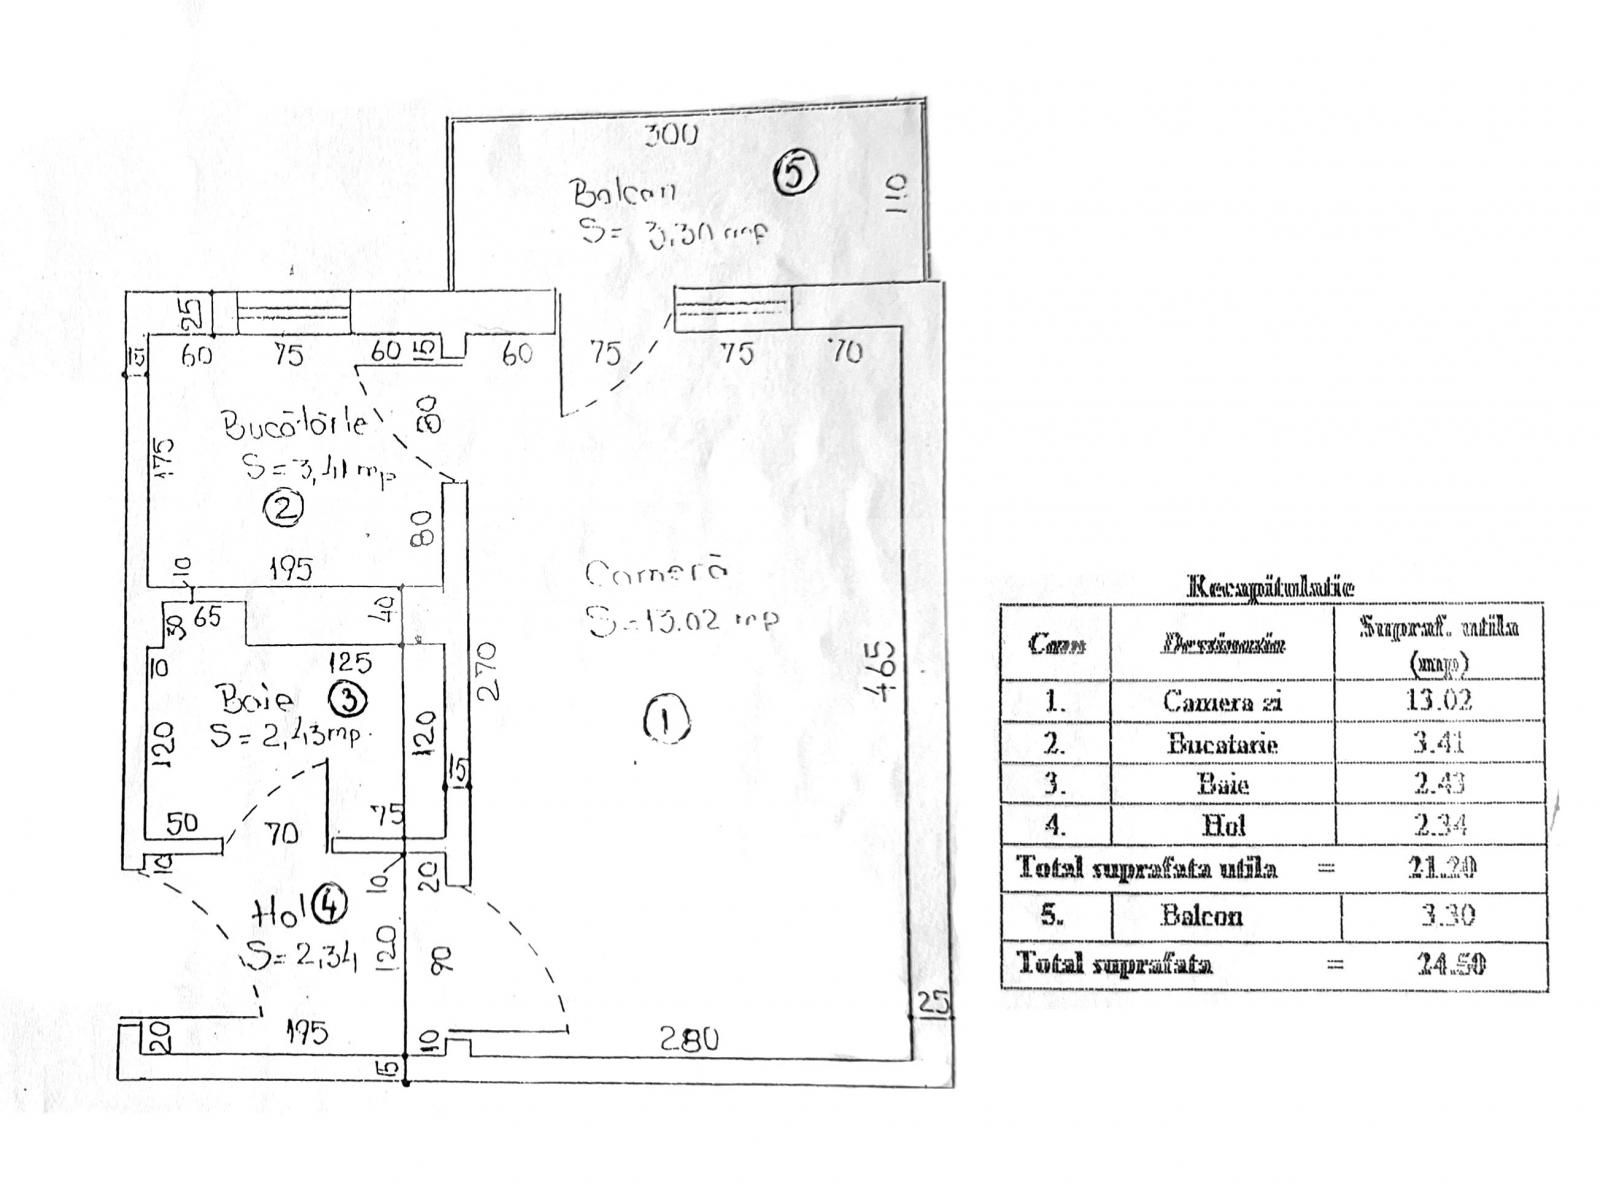 300
Balcon
5
S= 3,30 mp
110
25
60
75
60
15
60
75
75
70
15
175
Bucătărie
S=3,41 mp
2
80
80
195
10
65
30
40
10
125
Baie
3
S= 2,43mp.
120
120
50
70
75
15
270
Cameră
S=13.02 mp
1
465
10
10
20
Hol
4
S= 2,34
120
90
20
195
10
15
280
25
Recapitulatie
Cam Destinatia Supraf. utila
(mp)
1. Camera zi 13.02
2. Bucatarie 3.41
3. Baie 2.43
4. Hol 2.34
Total suprafata utila = 21.20
5. Balcon 3.30
Total suprafata = 24.50